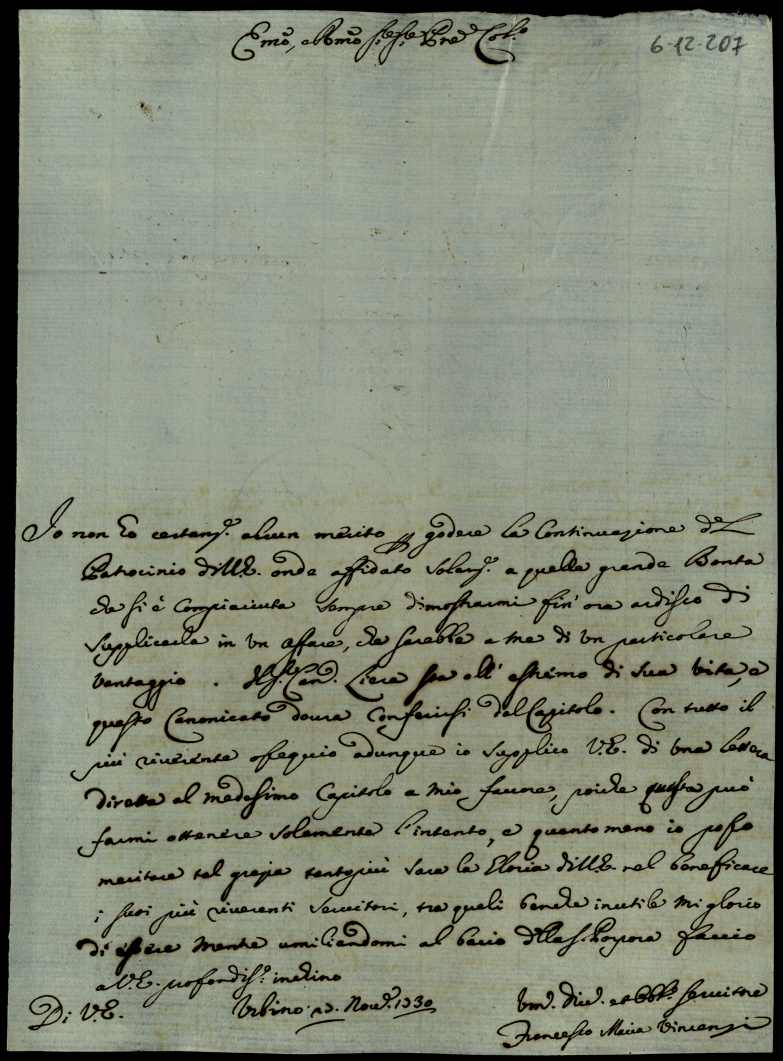 Emo, e Rmo Sig.e Sig.e Pne Col.o
6-12-207
Io non ho certam.e alcun merito per godere la Continuazione del
Patrocinio dell'E. onde affidato solam.e a quella grande Bontà
che si è Compiaciuta sempre dimostrarmi fin' ora ardisco di
supplicarla in un affare, che sarebbe a me di un particolare
vantaggio. Il S.r Can.o sta all' estremo di sua vita, e
questo Canonicato dovrà Conferirsi dal Capitolo. Con tutto il
più riverente ossequio adunque io supplico V.E. di una lettera
diretta al medesimo Capitolo a mio favore, poiche questa può
farmi ottenere solamente l'intento, e quanto meno io posso
meritare tal grazia tanto più sarà la Gloria dell'E. nel beneficare
i suoi più riverenti servitori, tra quali benche inutile mi glorio
di essere mentre umiliandomi al bacio della S. Porpora faccio
a V.E. profondiss.o inchino
Di V.E. Urbino Nov.e 1730 Um.o Div.o et Obb.o Servitore
Francesco Maria Vincenzi